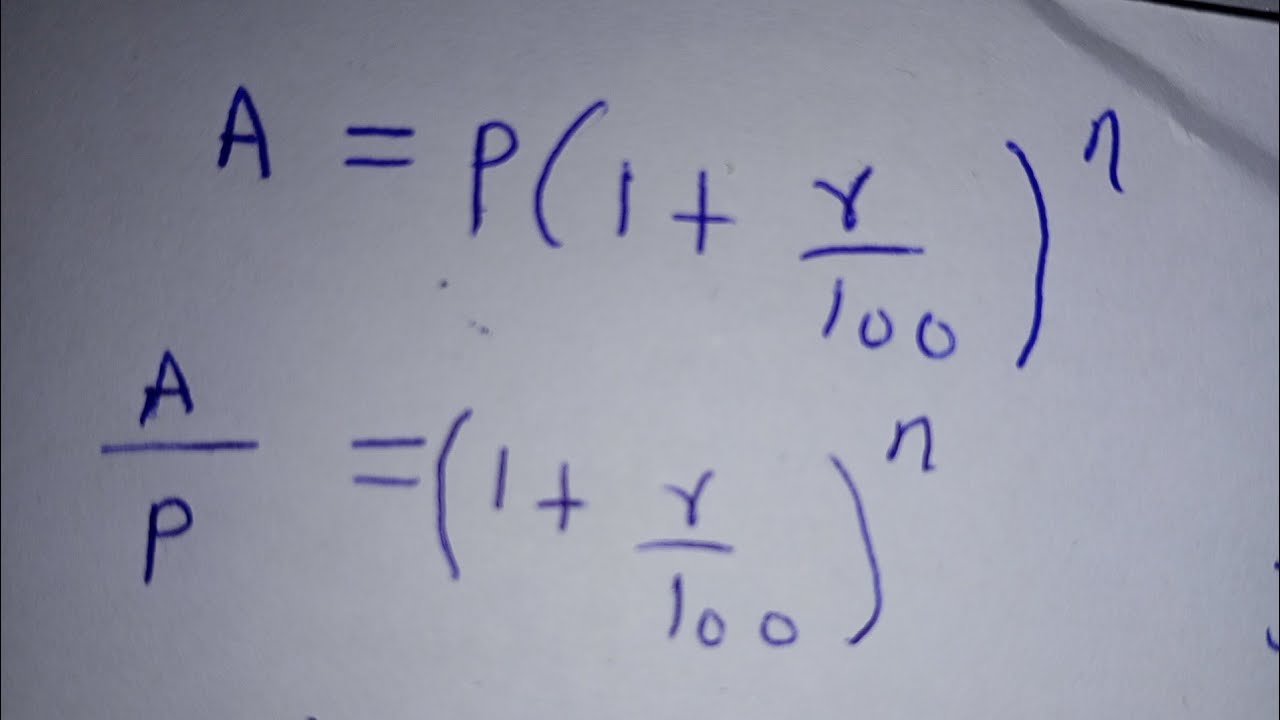 A = P(1 + r/100)^n
A/P = (1 + r/100)^n